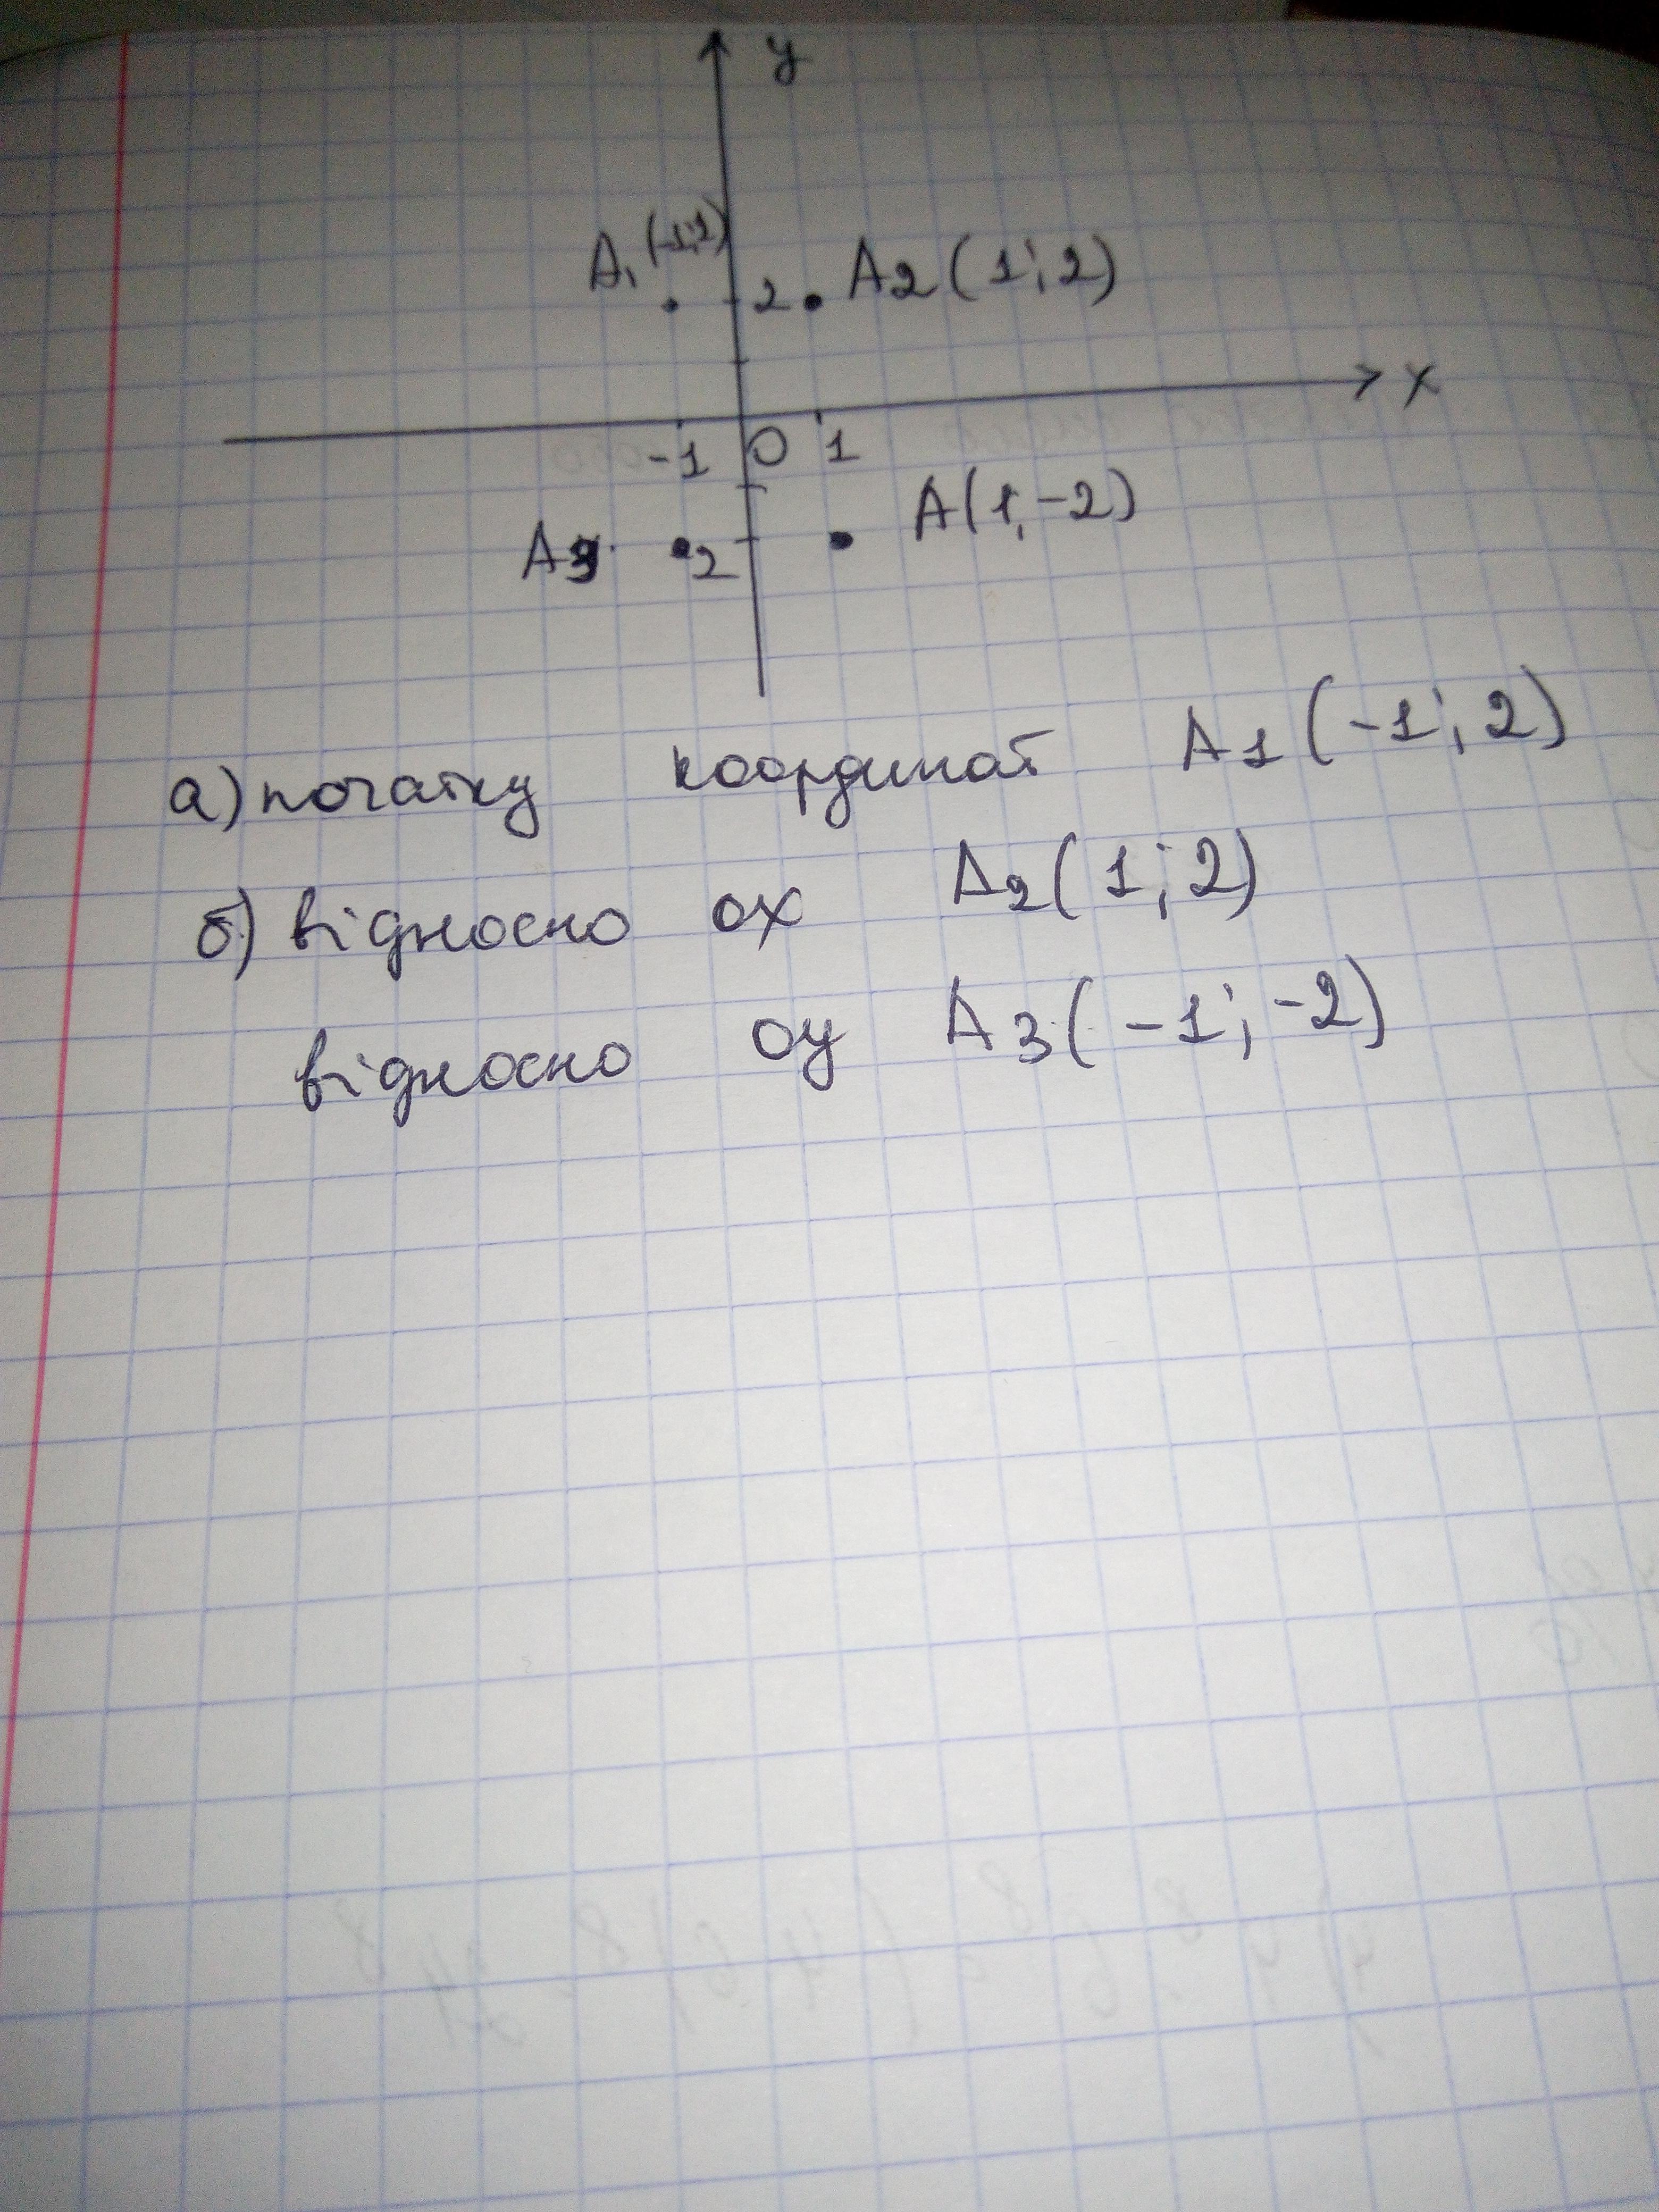 y
A₁(-1;2)
2 A2(1;2)
x
-1 0 1
A(1;-2)
A3 -2
а) початку координат A1(-1;2)
б) відносно ox A2(1;2)
відносно oy A3(-1;-2)